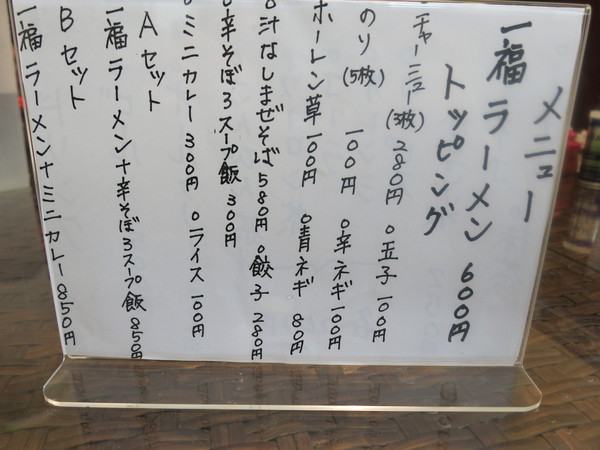 メニュー
一福ラーメン 600円
トッピング
チャーシュー(3枚) 280円 ○玉子 100円
のり(5枚) 100円 ○辛ネギ 100円
ホーレン草 100円 ○青ネギ 80円
○汁なしまぜそば 580円 ○餃子 280円
○辛そぼろスープ飯 300円
○ミニカレー 300円 ○ライス 100円
Aセット
一福ラーメン+辛そぼろスープ飯 850円
Bセット
一福ラーメン+ミニカレー 850円